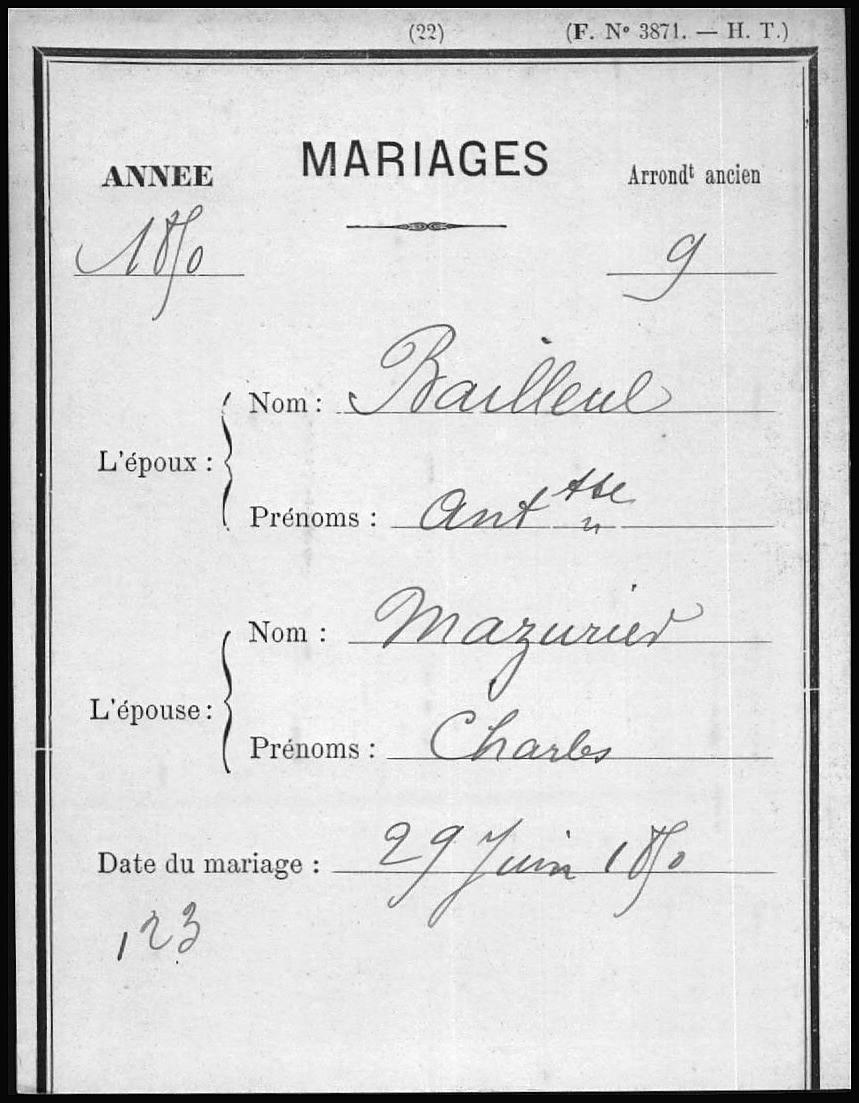 (22) (F. Nº 3871. — H. T.)
ANNEE MARIAGES Arrondᵗ ancien
1850 9
L'époux :
Nom : Bailleul
Prénoms : Ant
L'épouse :
Nom : Mazurier
Prénoms : Charles
Date du mariage : 29 Juin 1850
123